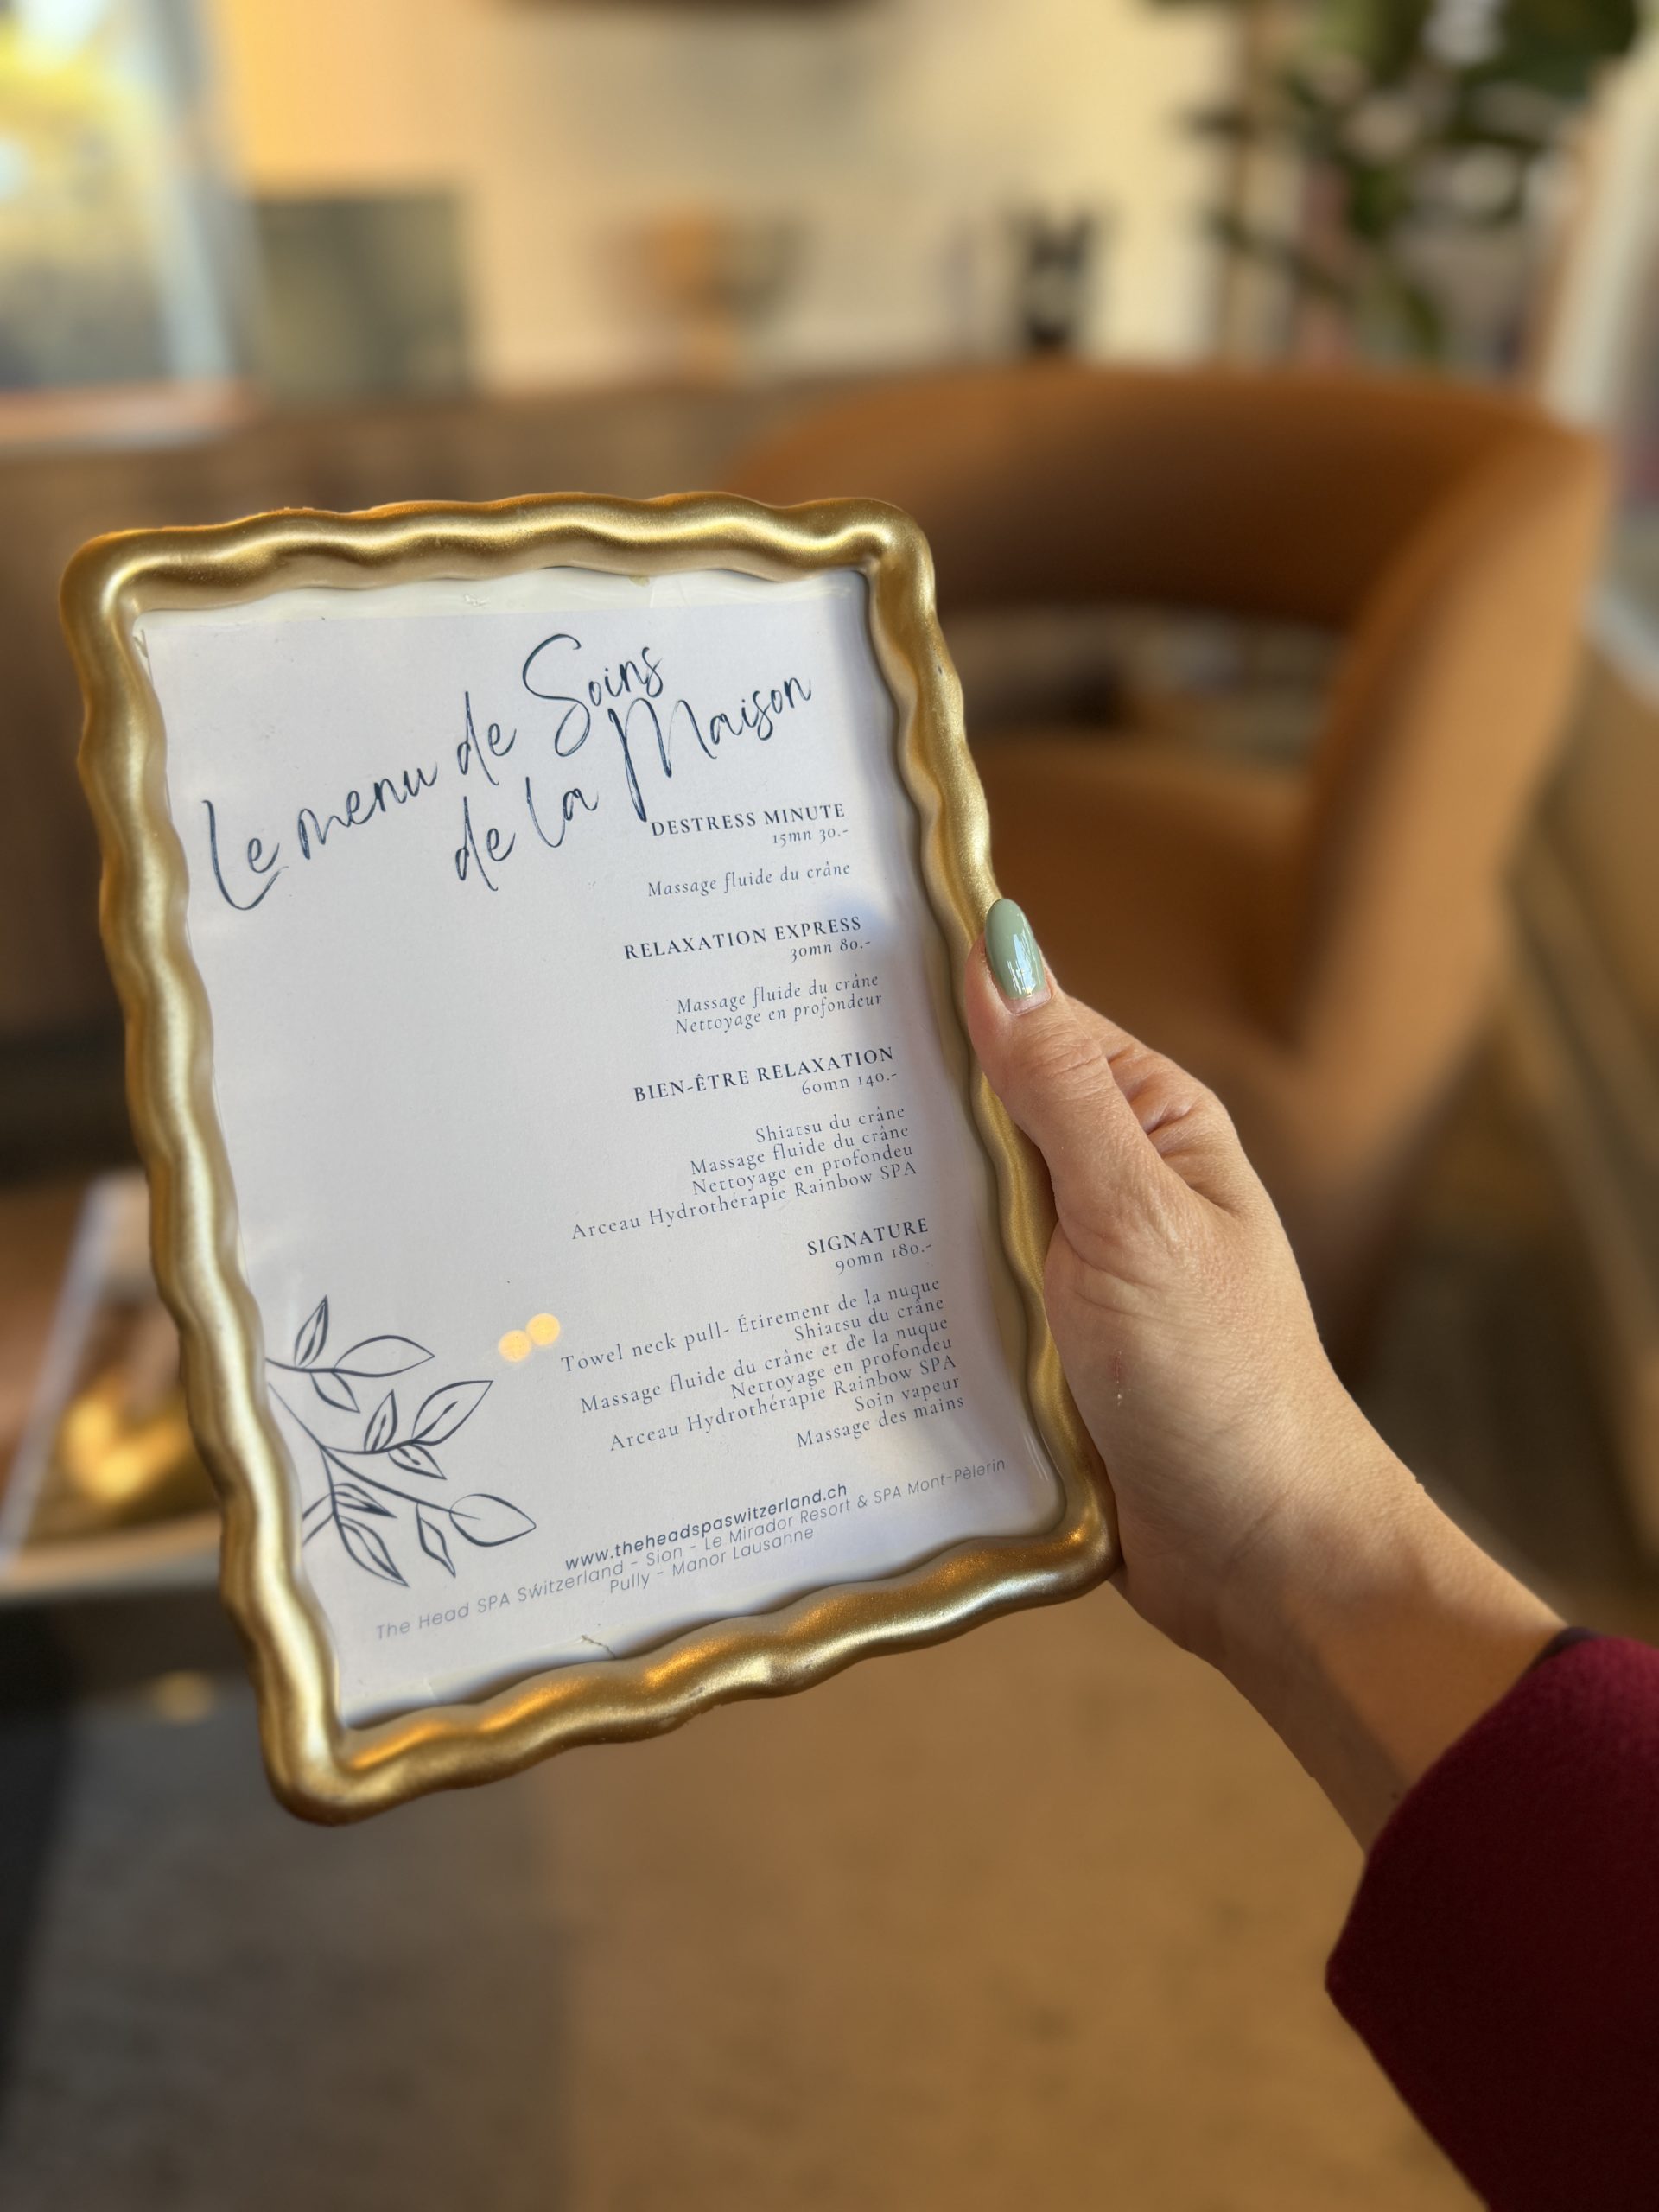 Le menu de Soins
de la Maison
DESTRESS MINUTE
15mn 30.-
Massage fluide du crâne
RELAXATION EXPRESS
30mn 80.-
Massage fluide du crâne
Nettoyage en profondeur
BIEN-ÊTRE RELAXATION
60mn 140.-
Shiatsu du crâne
Massage fluide du crâne
Nettoyage en profondeu
Arceau Hydrothérapie Rainbow SPA
SIGNATURE
90mn 180.-
Towel neck pull- Étirement de la nuque
Shiatsu du crâne
Massage fluide du crâne et de la nuque
Nettoyage en profondeu
Arceau Hydrothérapie Rainbow SPA
Soin vapeur
Massage des mains
www.theheadspaswitzerland.ch
The Head SPA Switzerland - Sion - Le Mirador Resort & SPA Mont-Pèlerin
Pully - Manor Lausanne